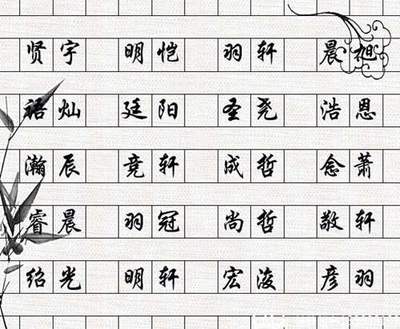 贤宇 明恺 羽轩 晨旭
灿 廷阳 圣尧 浩恩
瀚辰 竞轩 成哲 念萧
睿晨 羽冠 尚哲 敬轩
绍光 明轩 宏浚 彦羽